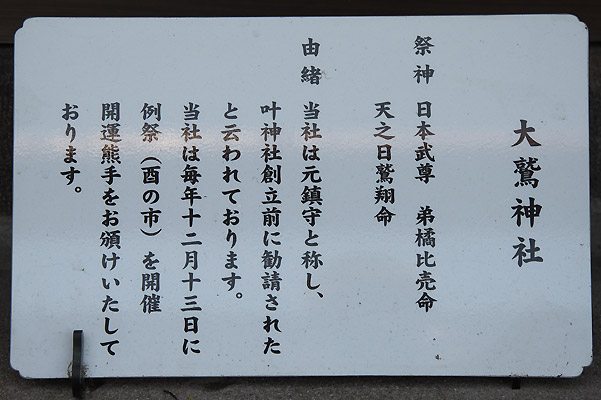 大鷲神社
祭神 日本武尊 弟橘比売命
天之日鷲翔命
由緒 当社は元鎮守と称し、
叶神社創立前に勧請された
と云われております。
当社は毎年十二月十三日に
例祭(酉の市)を開催
開運熊手をお頒けいたして
おります。